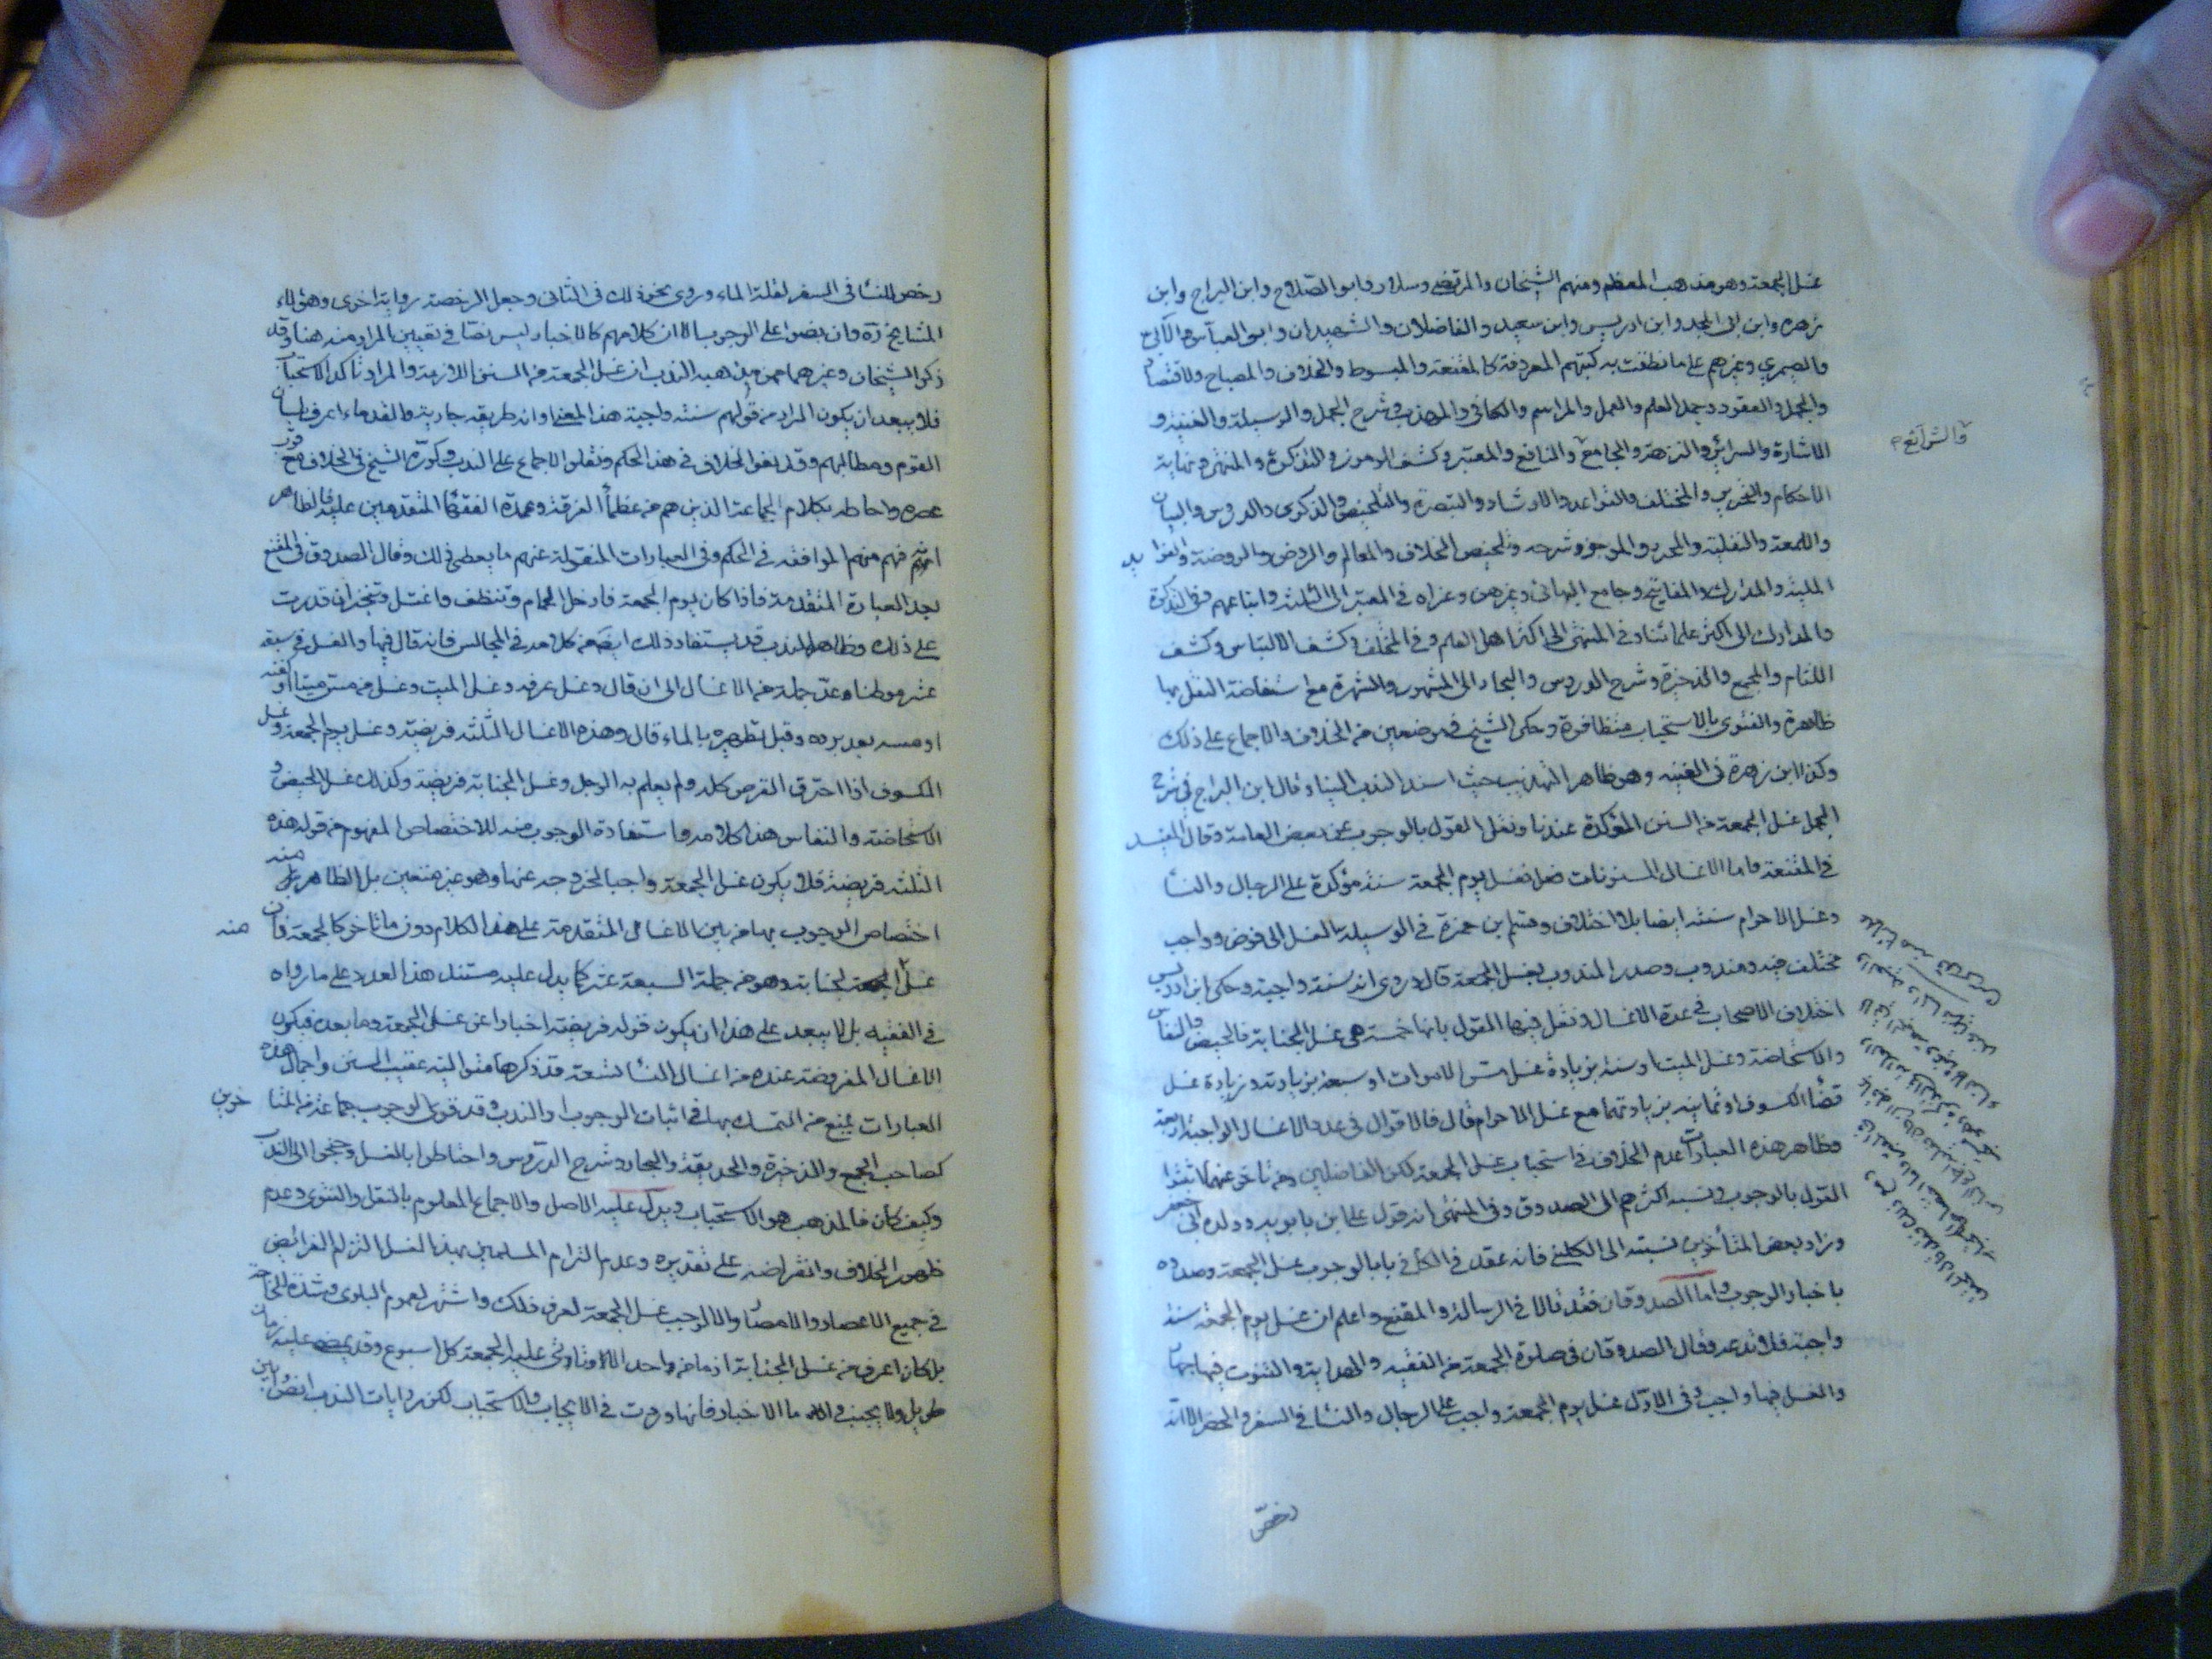 غسل الجمعة وهو مذهب المعظم ومنهم الشيخان والمرتضى وسلار وابو الصلاح وابن البراج وابن
زهره وابن ابى المجد وابن ادريس وابن سعيد والفاضلان والشهيدان وابو العباس والآبى
والصيمري وغيرهم على ما نطقت به كتبهم المعروفة كالمقنعة والمبسوط والخلاف والمصباح والاقتصاد
والجمل والعقود وجمل العلم والعمل والمراسم والكافى والمهذب وشرح الجمل والوسيلة والغنية و
الاشارة والسرائر والنزهة والجامع والنافع والمعتبر وكشف الرموز والتذكرة والمنتهى ونهاية
والشرائع
الاحكام والتحرير والمختلف والقواعد والارشاد والتبصرة والتلخيص والذكرى والدروس والبيان
واللمعة والنفلية والمحرر والموجز وشرحه وتلخيص الخلاف والمعالم والروض والروضة والفوايد
الملية والمدارك والمفاتيح وجامع البهائى وغيرهن وعزاه فى المعتبر الى الثلثة واتباعهم وفى التذكرة
والمدارك الى اكثر علمائنا وفى المنتهى الى اكثر اهل العلم وفى المختلف وكشف الالتباس وكشف
اللثام والمجمع والذخيرة وشرح الدروس والبحار الى المشهور والشهرة مع استفاضة النقل بها
ظاهرة والفتوى بالاستحباب متظافرة وحكى الشيخ فى موضعين من الخلاف الاجماع على ذلك
وكذا ابن زهرة فى الغنيه وهو ظاهر التهذيب حيث اسند الندب الينا وقال ابن البراج فى شرح
الجمل غسل الجمعة من السنن المؤكدة عندنا ونقل القول بالوجوب عن بعض العامة وقال المفيد
فى المقنعة واما الاغسال المسنونات فغسل يوم الجمعة سنة مؤكدة على الرجال والنسا
وغسل الاحرام سنة ايضا بلا اختلاف وقسم ابن حمزة فى الوسيلة الغسل الى فرض وواجب
مختلف فيه ومندوب وصدر المندوب بغسل الجمعة قال وروى انه سنة واجبة وحكى ابن ادريس
اختلاف الاصحاب فى عدة الاغسال ونقل فيها القول بانها خمسة هى غسل الجنابة والحيض والنفاس
والاستحاضة وغسل الميت او ستة بزيادة غسل مس الاموات او سبعة بزيادته وزيادة غسل
قضأ الكسوف او ثمانيه بزيادتهما مع غسل الاحرام قال فالاقوال فى عدد الاغسال الواجبة اربعة
وظاهر هذه العبارات عدم الخلاف فى استحباب غسل الجمعة لكن الفاضلين ومن تاخر عنهما اثبتوا
القول بالوجوب ونسبه اكثرهم الى الصدوق وفى المنتهى انه قول على ابن بابويه وولده ابى جعفر
وزاد بعض المتأخرين نسبته الى الكلينى فانه عقد فى الكافى بابا لوجوب غسل الجمعة وصدره
باخبار الوجوب واما الصدوقان فقد قالا فى الرسالة والمقنع واعلم ان غسل يوم الجمعة سنة
واجبة فلا تدعه وقال الصدوقان فى صلوة الجمعة من الفقيه والهداية والقنوت فيها جهار
والغسل فيها واجب وفى الاول غسل يوم الجمعة واجب على الرجال والنسا فى السفر والحضر الا انه
رخص
رخص للنسا فى السفر لقلة الماء وروى نحو ذلك فى الثانى وجعل الرخصة رواية اخرى وهؤلاء
المشايخ ره وان نصوا على الوجوب الا ان كلامهم كالاخبار ليس نصا فى تعيين المراد منه هنا وقد
ذكر الشيخان وغيرهما ممن مذهبه الندب ان غسل الجمعة من السنن اللازمة والمراد تاكد الاستحباب
فلا يبعد ان يكون المراد من قولهم سنة واجبة هذا المعنى وانه طريقه جارية والقدماء اعرف بلسان
القوم ومطالبهم وقد نفوا الخلاف فى هذا الحكم ونقلوا الاجماع على الندب وكرره الشيخ فى الخلاف مع قرب
عصره واحاطه بكلام الجماعة الذين هم من عظمأ الفرقة وعمدة الفقهأ المتقدمين عليه فالظاهر
انه فهم منهم الموافقه فى الحكم وفى العبارات المنقولة عنهم ما يعطى ذلك وقال الصدوق فى المقنع
بعد العبارة المتقدمة فاذا كان يوم الجمعة فادخل الحمام وتنظف واغتسل وتبخر ان قدرت
على ذلك وظاهره الندب قد يستفاد ذلك ايض من كلامه فى المجالس فانه قال فيها والغسل فى سبعة
عشر موطنا وعد جملة من الاغسال الى ان قال وغسل عرفه وغسل الميت وغسل من مس ميتا او كفنه
او مسه بعد برده وقبل تطهيره بالماء قال وهذه الاغسال الثلثه فريضة وغسل يوم الجمعة وغسل
الكسوف اذا احترق القرص كله ولم يعلم به الرجل وغسل الجنابة فريضة وكذلك غسل الحيض و
الاستحاضة والنفاس هذا كلامه واستفادة الوجوب منه للاختصاص المفهوم من قوله هذه
الثلثه فريضة فلا يكون غسل الجمعة واجبا لخروجه عنها وهو غير متعين بل الظاهر منه
اختصاص الوجوب بها من بين الاغسال المتقدمة على هذا الكلام دون ما تاخر كالجمعة فان منه
غسل الجنابة وهو من جملة السبعة عشر كما يدل عليه مستند هذا العدد على ما رواه
فى الفقيه بل لا يبعد على هذا ان يكون قوله فريضة اخبارا عن غسل الجمعة وما بعده فيكون
الاغسال المفروضة عنده من اغسال النسا تسعة قد ذكرها متوالية عقيب السنن واجمال هذه
العبارات يمنع من التمسك بها فى اثبات الوجوب او الندب وقد قوى الوجوب جماعة من المتاخرين
كصاحب المجمع والذخيرة والحديقة والبحار وشرح الدروس واحتاطوا بالغسل وجنحوا الى الندب
وكيف كان فالمذهب هو الاستحباب ويدل عليه الاصل والاجماع المعلوم بالنقل والفتوى وعدم
ظهور الخلاف وانقراضه على تقديره وعدم التزام المسلمين بهذا الغسل التزام الفرائض
فى جميع الاعصار والامصار ولو وجب غسل الجمعة لعرف ذلك واشتهر لعموم البلوى وشدة الحاجة
بل كان اعرف من غسل الجنابة اذ ما من واحد الا وتاتى عليه الجمعة كل اسبوع وقد يمضى عليه زمان
طويل ولا يجنب واما الاخبار فانها وردت فى الايجاب والاستحباب لكن روايات الندب انص